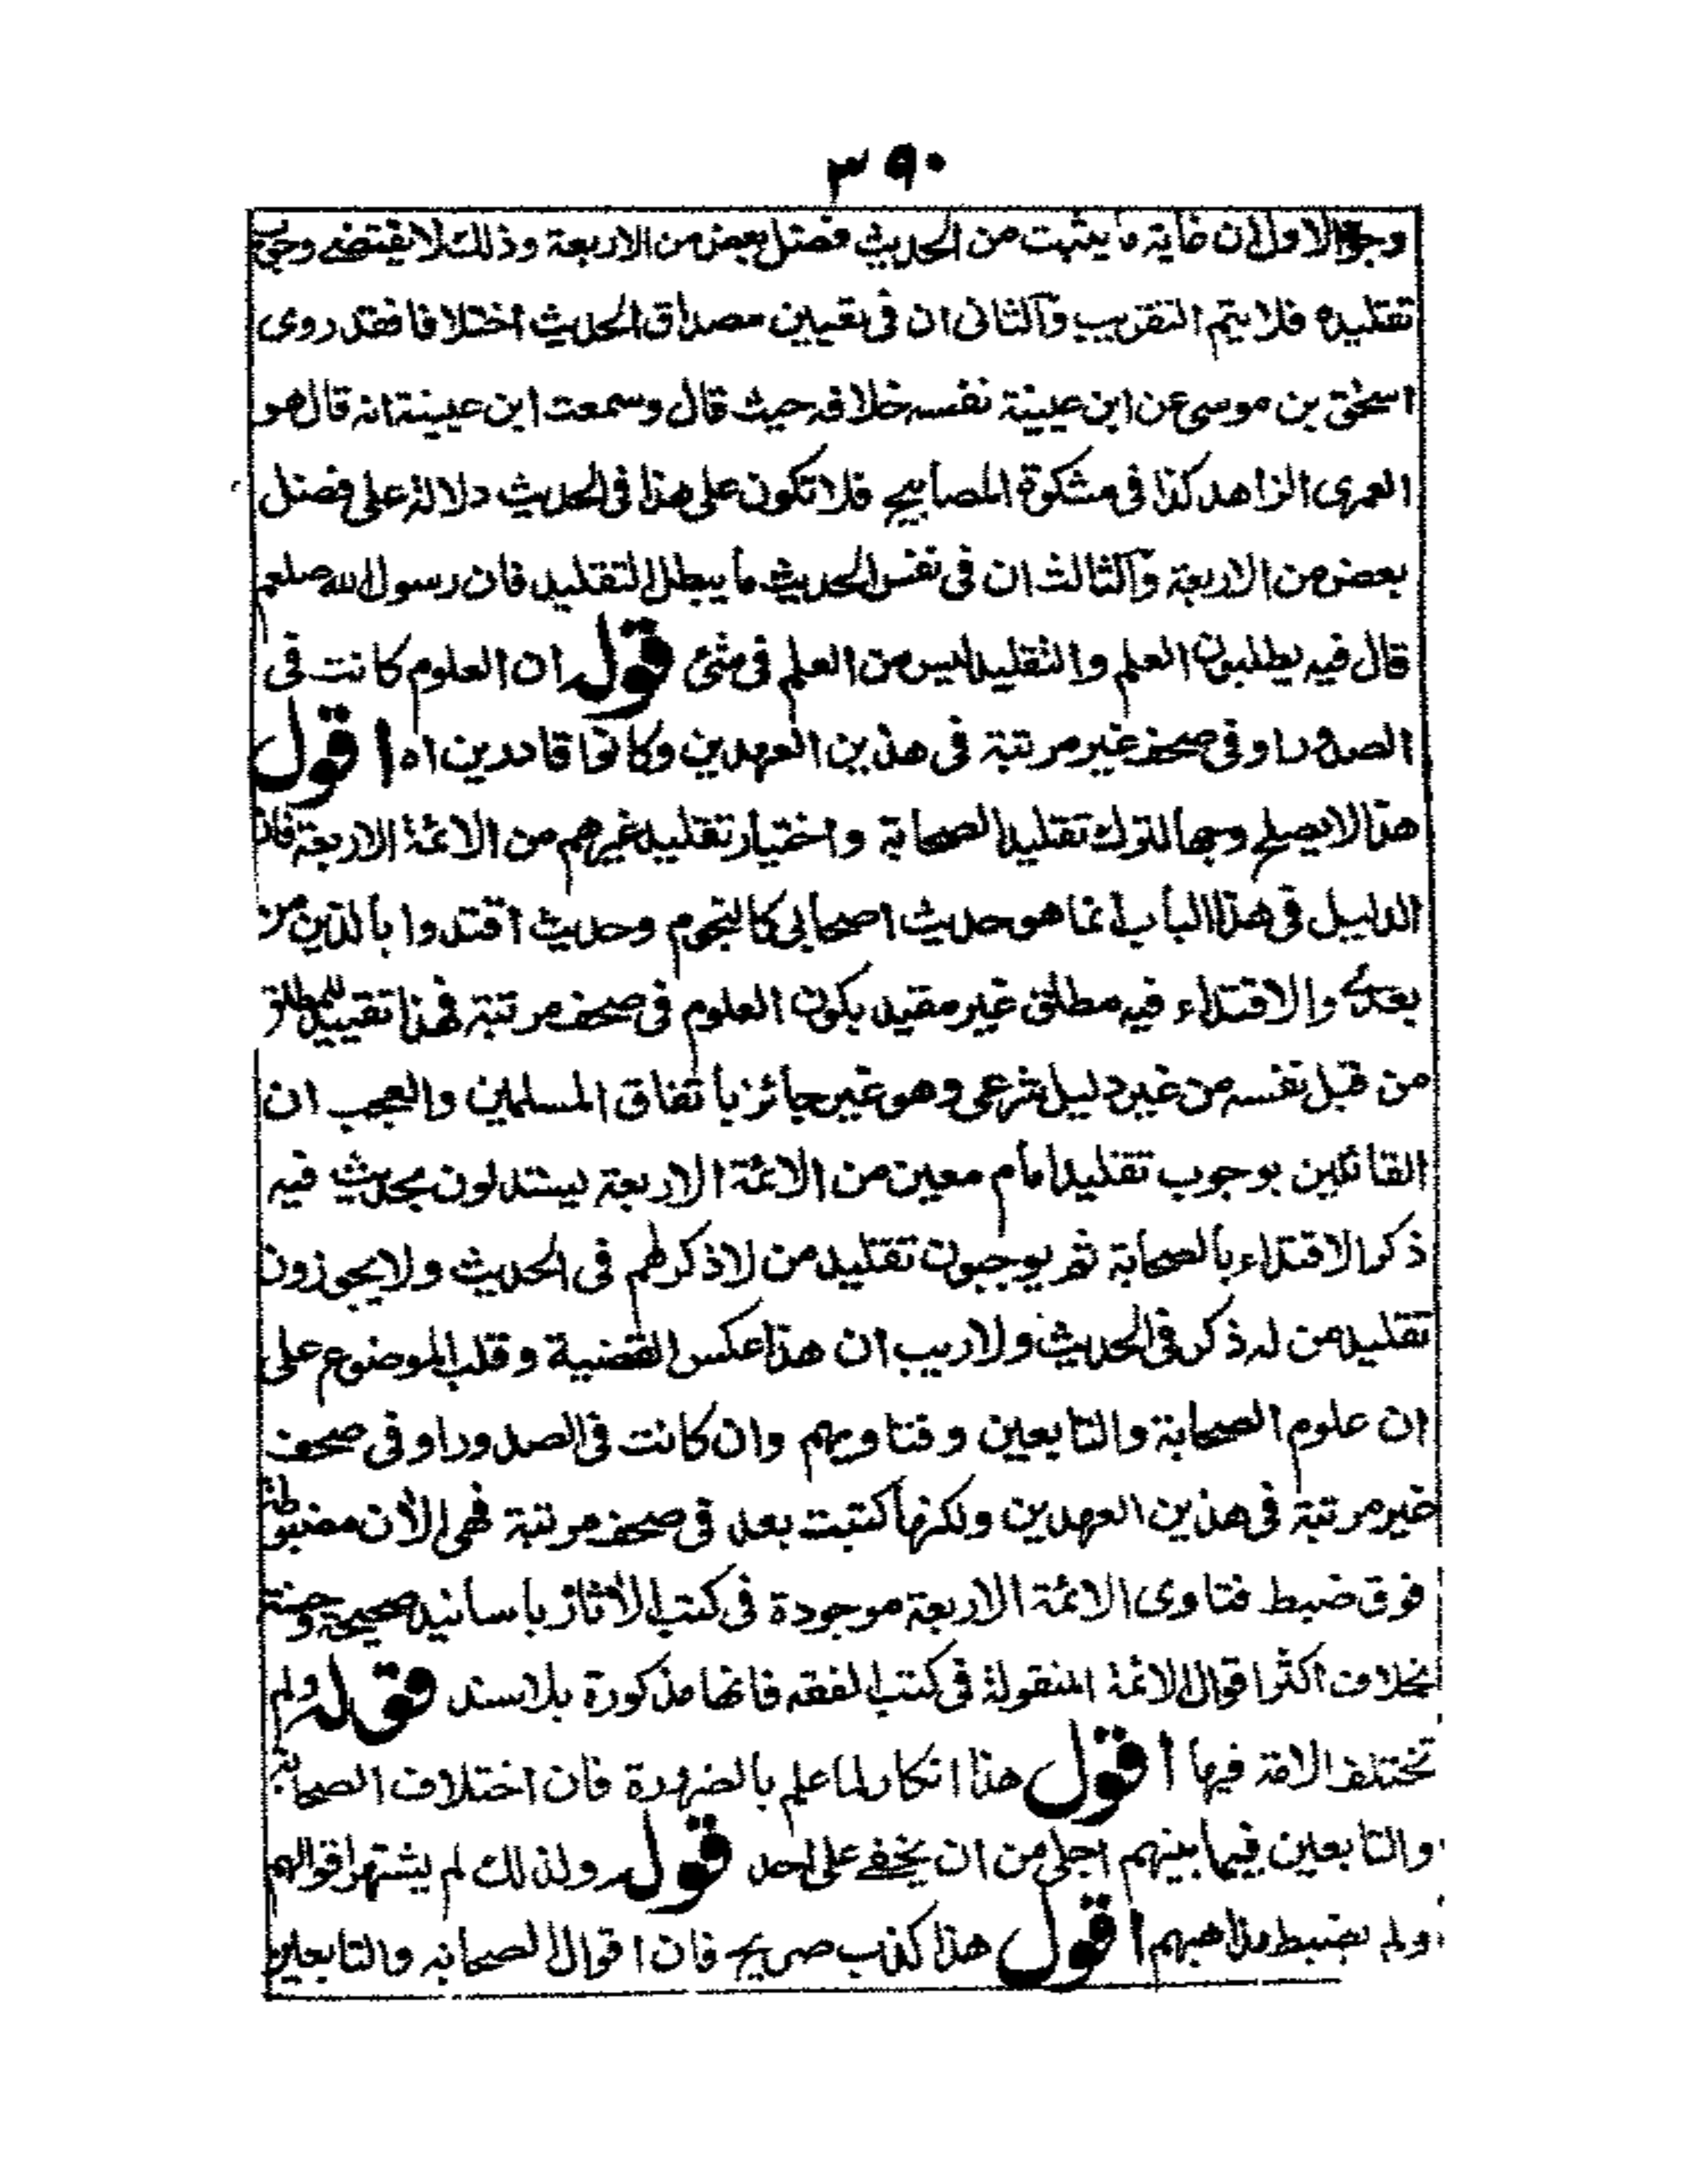 ٣٩٠
وجوه الاول ان غاية ما يثبت من الحديث فضل بعض من الاربعة وذلك لا يقتضے وجوب
تقليده فلا يتم التقريب والثانى ان فى تعيين مصداق الحديث اختلافا فقد روى
اسحٰق بن موسى عن ابن عيينة نفسه خلافه حيث قال وسمعت ابن عيينة انه قال هو
العمرى الزاهد كذا فى مشكوة المصابيح فلا تكون على هذا فى الحديث دلالة على فضل
بعض من الاربعة والثالث ان فى نفس الحديث ما يبطل التقليد فان رسول الله صلعم
قال فيه يطلبون العلم والتقليد ليس من العلم فى شئ قوله ان العلوم كانت فى
الصدور او فى صحف غير مرتبة فى هذين العهدين وكانوا قادرين اه اقول
هذا لا يصلح وجها لترك تقليد الصحابة واختيار تقليد غيرهم من الائمة الاربعة فان
الدليل فى هذا الباب انما هو حديث اصحابى كالنجوم وحديث اقتدوا بالذين من
بعدى والاقتداء فيه مطلق غير مقيد بكون العلوم فى صحف مرتبة فهذا تقييد للمطلق
من قبل نفسه من غير دليل شرعى وهو غير جائز باتفاق المسلمين والعجب ان
القائلين بوجوب تقليد امام معين من الائمة الاربعة يستدلون بحديث فيه
ذكر الاقتداء بالصحابة ثم يوجبون تقليد من لا ذكر لهم فى الحديث ولا يجوزون
تقليد من له ذكر فى الحديث ولا ريب ان هذا عكس القضية وقلب الموضوع على
ان علوم الصحابة والتابعين وفتاويهم وان كانت فى الصدور او فى صحف
غير مرتبة فى هذين العهدين ولكنها كتبت بعد فى صحف مرتبة فهى الأن مضبوطة
فوق ضبط فتاوى الائمة الاربعة موجودة فى كتب الأثار باسانيد صحيحة وحسنة
بخلاف اكثر اقوال الائمة المنقولة فى كتب الفقه فانها مذكورة بلا سند قوله ولم
تختلف الامة فيها اقول هذا انكار لما علم بالضرورة فان اختلاف الصحابة
والتابعين فيما بينهم اجلى من ان يخفے على احد قوله ولذلك لم يشتهر اقوالهم
ولم يضبط مذاهبهم اقول هذا كذب صريح فان اقوال الصحابة والتابعين